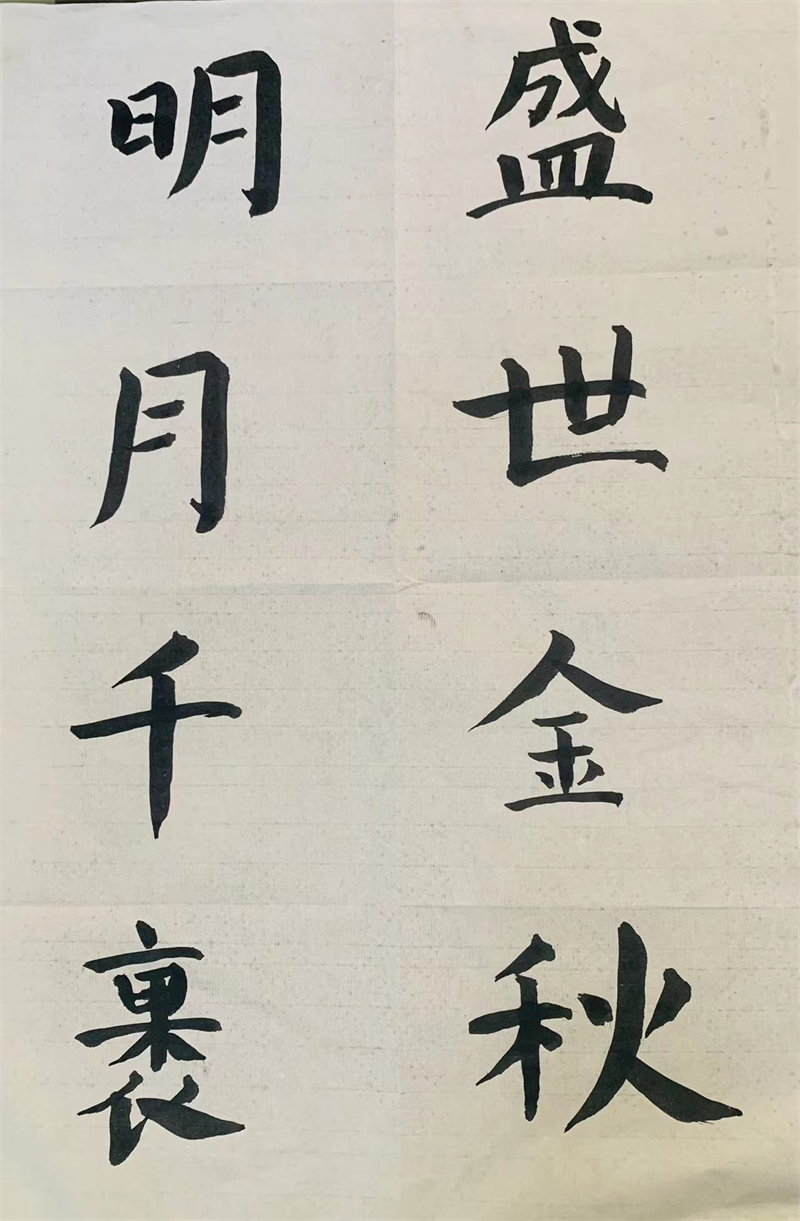 盛世金秋
明月千裹